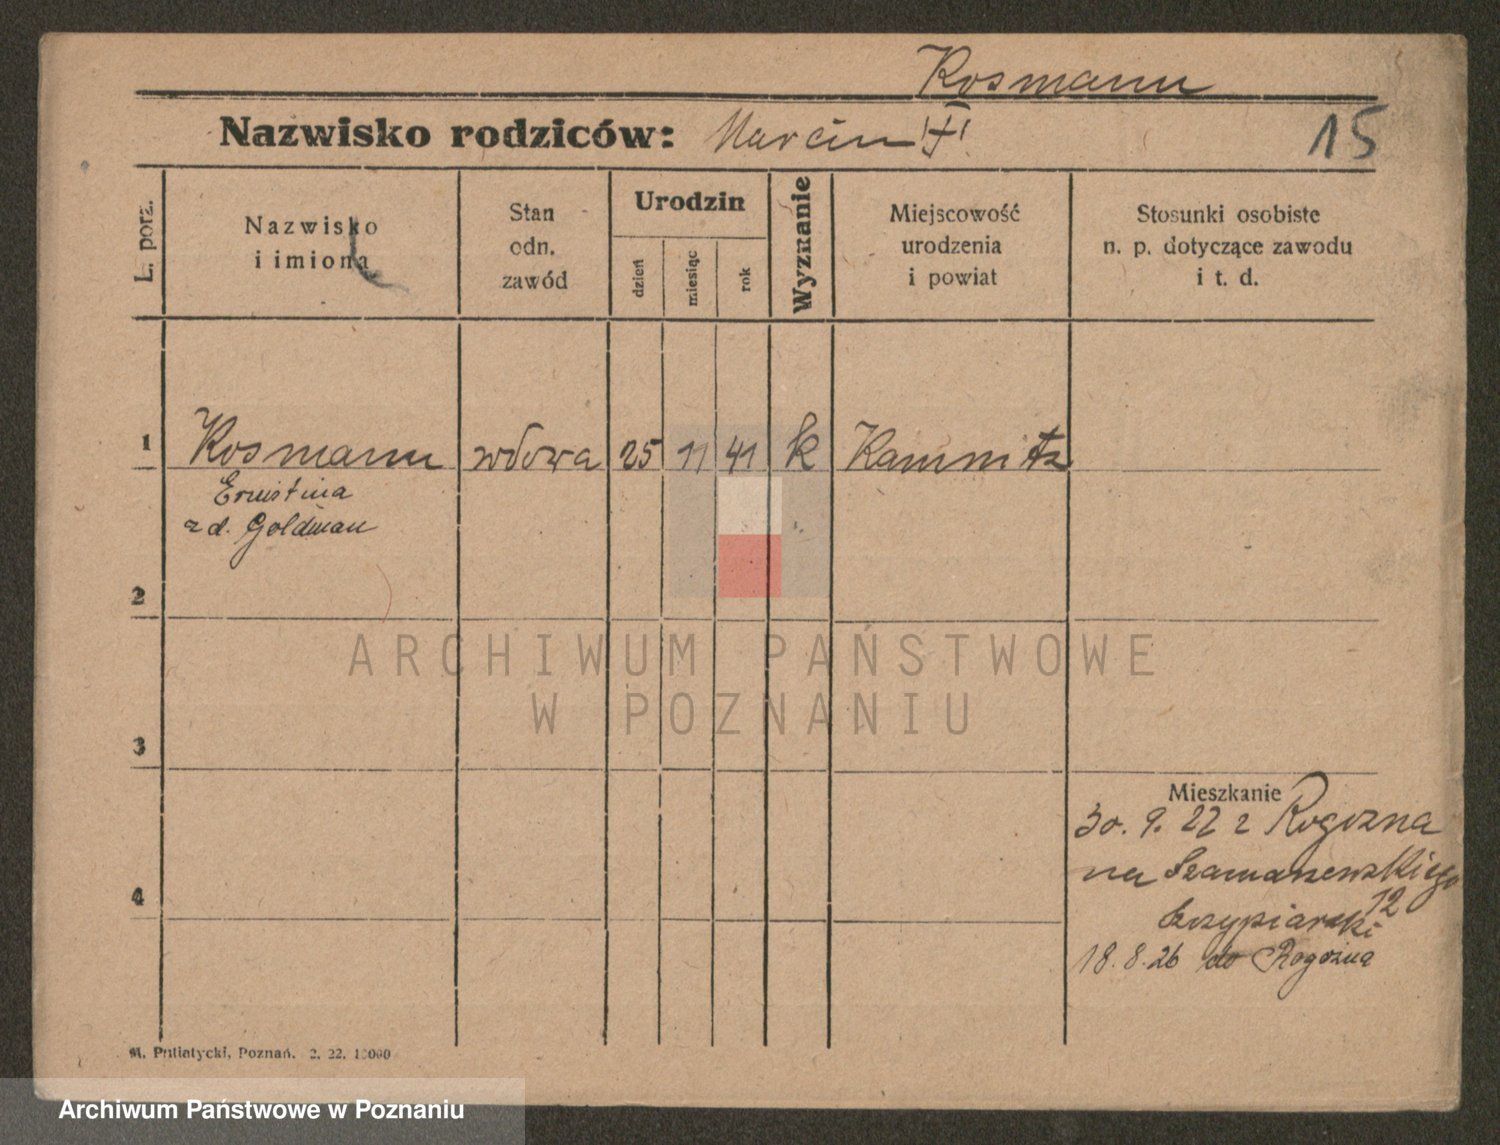 Kosmann
Nazwisko rodziców: Marcin
15
L. porz.
Nazwisko
i imiona
Stan
odn.
zawód
Urodzin
dzień
miesiąc
rok
Wyznanie
Miejscowość
urodzenia
i powiat
Stosunki osobiste
n. p. dotyczące zawodu
i t. d.
1
Kosmann wdowa 25 11 41 k Kamnitz
Ernistina
z d. Goldman
2
ARCHIWUM PAŃSTWOWE
W POZNANIU
3
Mieszkanie
30. 9. 22 z Rogozna
na Szamarzewskiego
12
4
18. 8. 26 do Rogozna
M. Putiatycki, Poznań. 2. 22. 10000
Archiwum Państwowe w Poznaniu